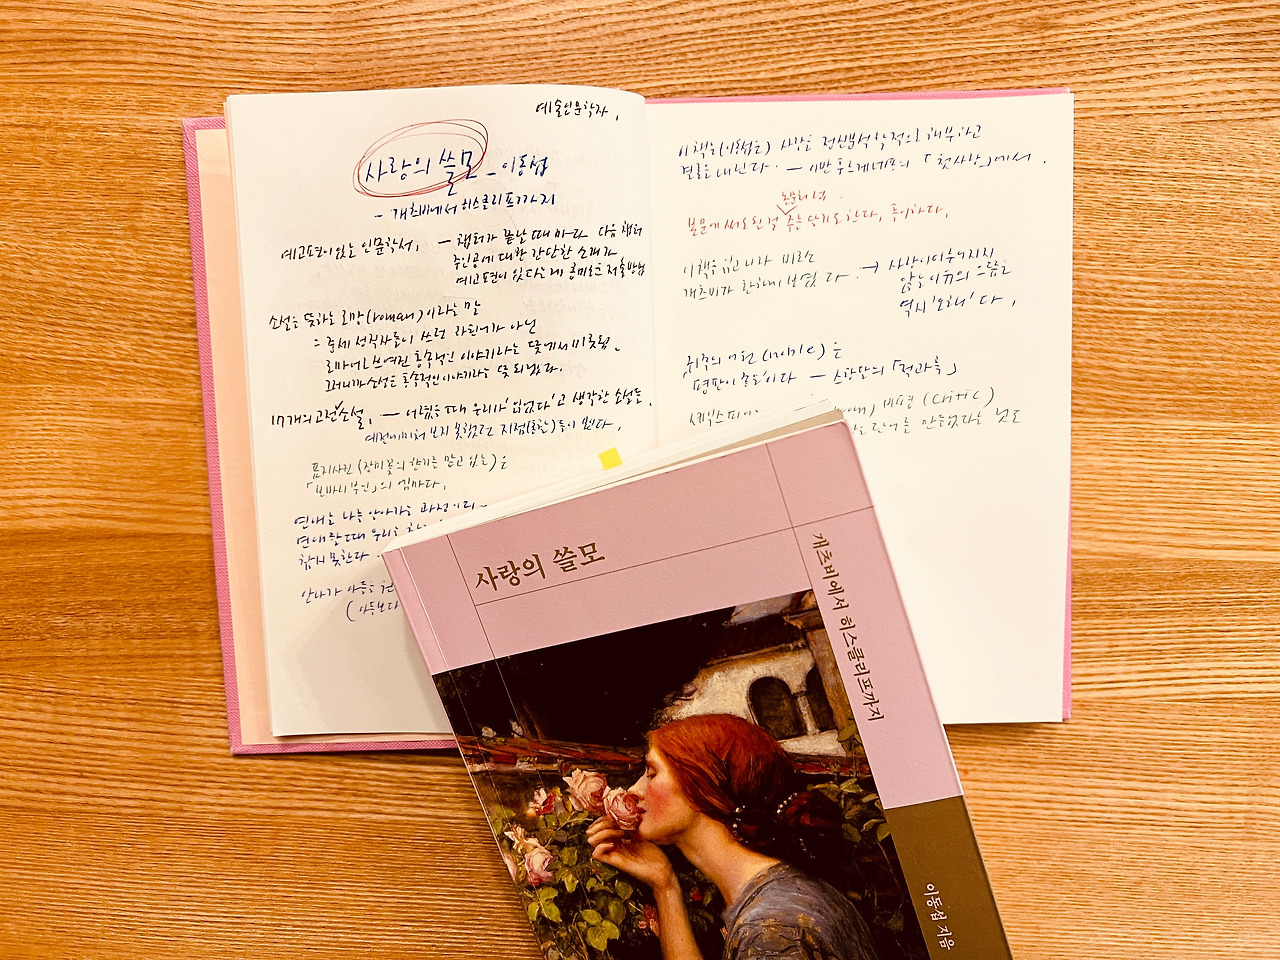 예술인문학자,
사랑의 쓸모 - 이동섭
- 개츠비에서 히스클리프까지
예고편이 있는 인문학서, - 챕터가 끝날 때마다 다음 챕터
주인공에 대한 간단한 소개가
예고편이 있다는게 흥미로운 저술방법
소설을 뜻하는 로망(roman)이라는 말
= 중세 성직자들이 쓰던 라틴어가 아닌
로마어로 쓰여진 통속적인 이야기라는 뜻에서 비롯됨.
그러니까 소설은 통속적인 이야기라는 뜻 되었다.
17개의 고전소설, - 어렸을 때 우리가 '읽었다'고 생각한 소설들,
예전에 미처 보지 못했던 지점(혹은)들이 보인다,
표지사진(장미꽃의 향기를 맡고 있는)은
「보바리 부인」의 엠마다,
연애는 나를 알아가는 과정이다
연애할 때 우리는
참지 못한다
안나가 아들을
(아들보다
이 책은(이동섭은) 사랑을 정신분석학적으로 해부하고
결론을 내린다. - 이반 투르게네프의 「첫사랑」에서.
논문처럼.
본문에 써도 된걸 주를 달기도 한다, 특이하다,
이 책을 읽고 나니 비로소
개츠비가 환하게 보였다. → 사랑이 이루어지지
않는 이유의 으뜸은
역시 '오해'다,
귀족의 어원(noble)은
'평판이 좋은'이다 - 스탕달의 「적과 흑」
셰익스피어 비평(critic)
단어를 만들었다는 것도
사랑의 쓸모
개츠비에서 히스클리프까지
이동섭 지음